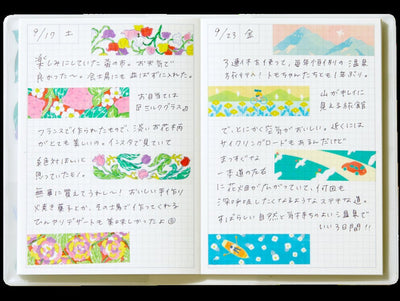 9/17 土
楽しみにしていた蚤の市。お天気で
良かった〜。会場にも並ばずに入れた。
お目当ては
デュラレックスのグラス
フランスで作られたもので、淡いお花柄
がとても美しいの。インスタで見ていて
自分もほしいと
思っていたもの。
無事に買えてうれしい〜! おいしい手作り
焼き菓子とか、生の場でイ作ってくれる
ひんやりデザートも美味しかったよ
9/23 金
3連休を使って、毎年か月イリの温泉
旅行へ! トモちゃんたちも1年ぶり。
山が美しく
見える旅館
で、とにかく空気がおいしい。近くには
サイクリングロードもあるんだけど
まっすぐな
一本道の左右
に花火田が広がっていて、イ何回も
深呼吸したくなるようなステキな道。
すばらしい自然と気持ちのよい温泉で
いい3日間!!